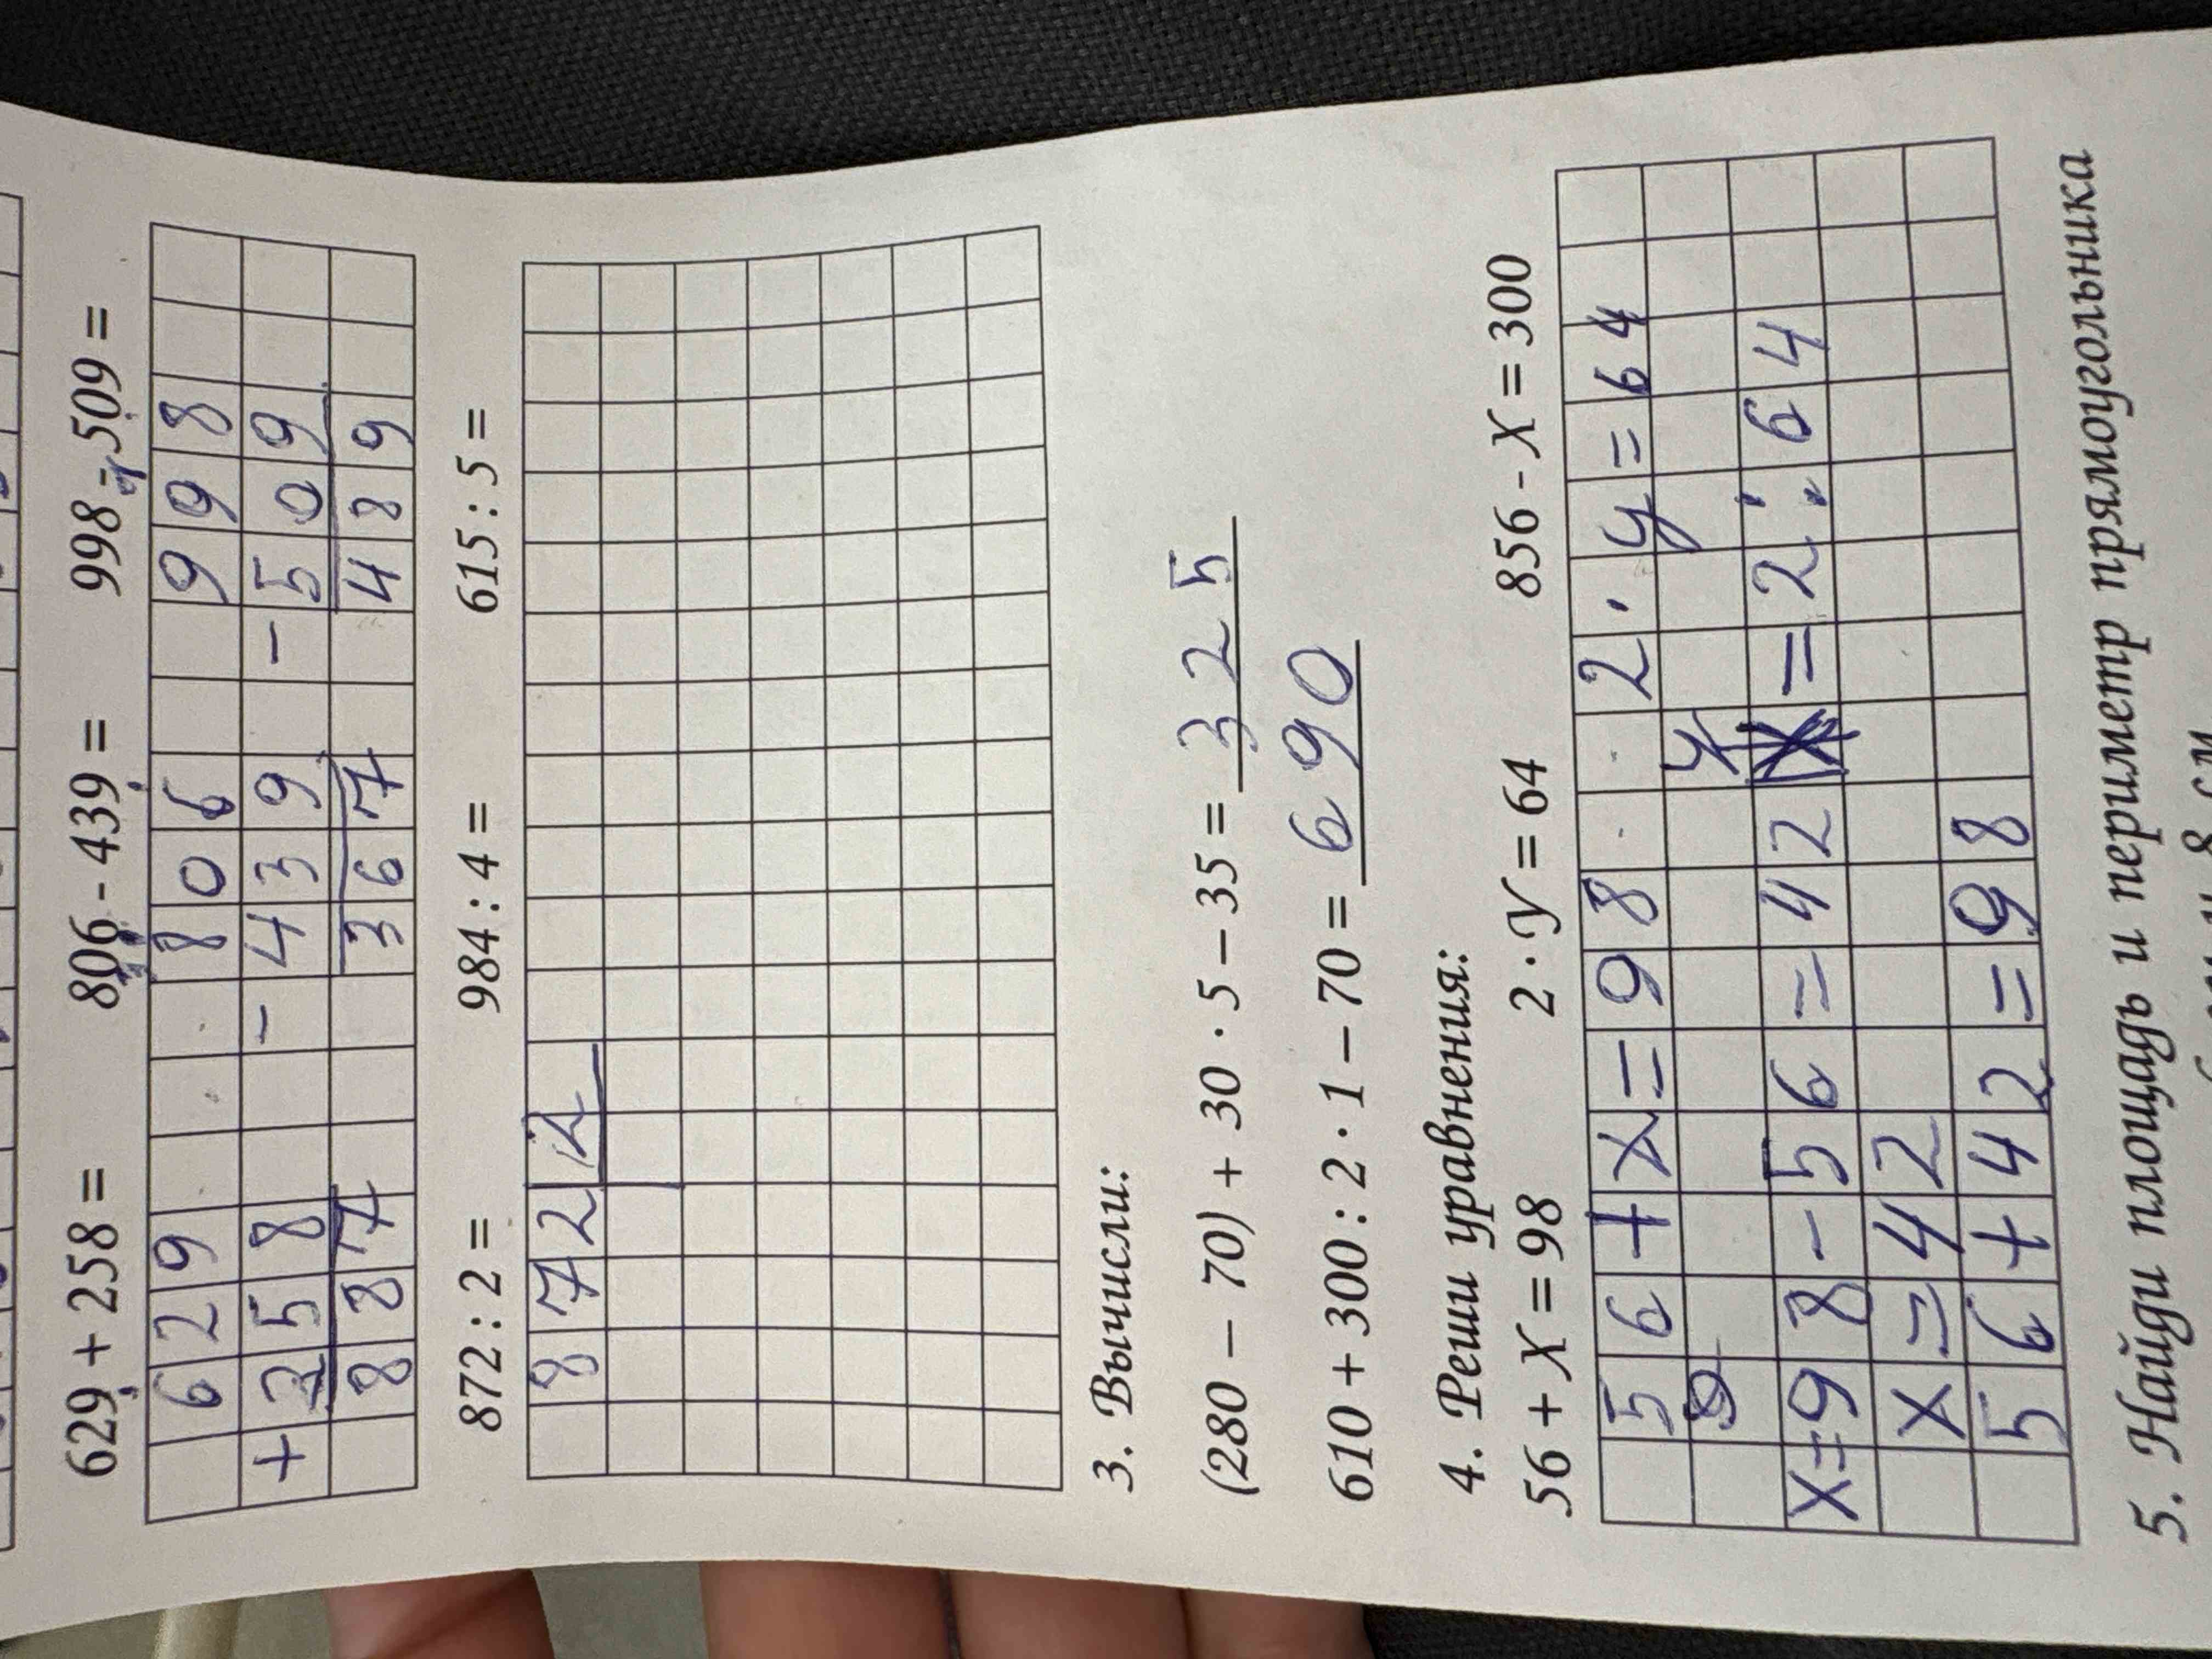 629 + 258 = 806 - 439 = 998 - 509 =
6 2 9 8 0 6 9 9 8
+ 2 5 8 - 4 3 9 - 5 0 9
8 8 7 3 6 7 4 8 9
872 : 2 = 984 : 4 = 615 : 5 =
8 7 2 2
3. Вычисли:
(280 – 70) + 30 · 5 – 35 = 325
610 + 300 : 2 · 1 – 70 = 690
4. Реши уравнения:
56 + X = 98 2 · У = 64 856 - X = 300
56 + x = 98 2 · y = 64
y
x = 98 - 56 = 42 = 2 : 64
x = 42
56 + 42 = 98
5. Найди площадь и периметр прямоугольника
8 см